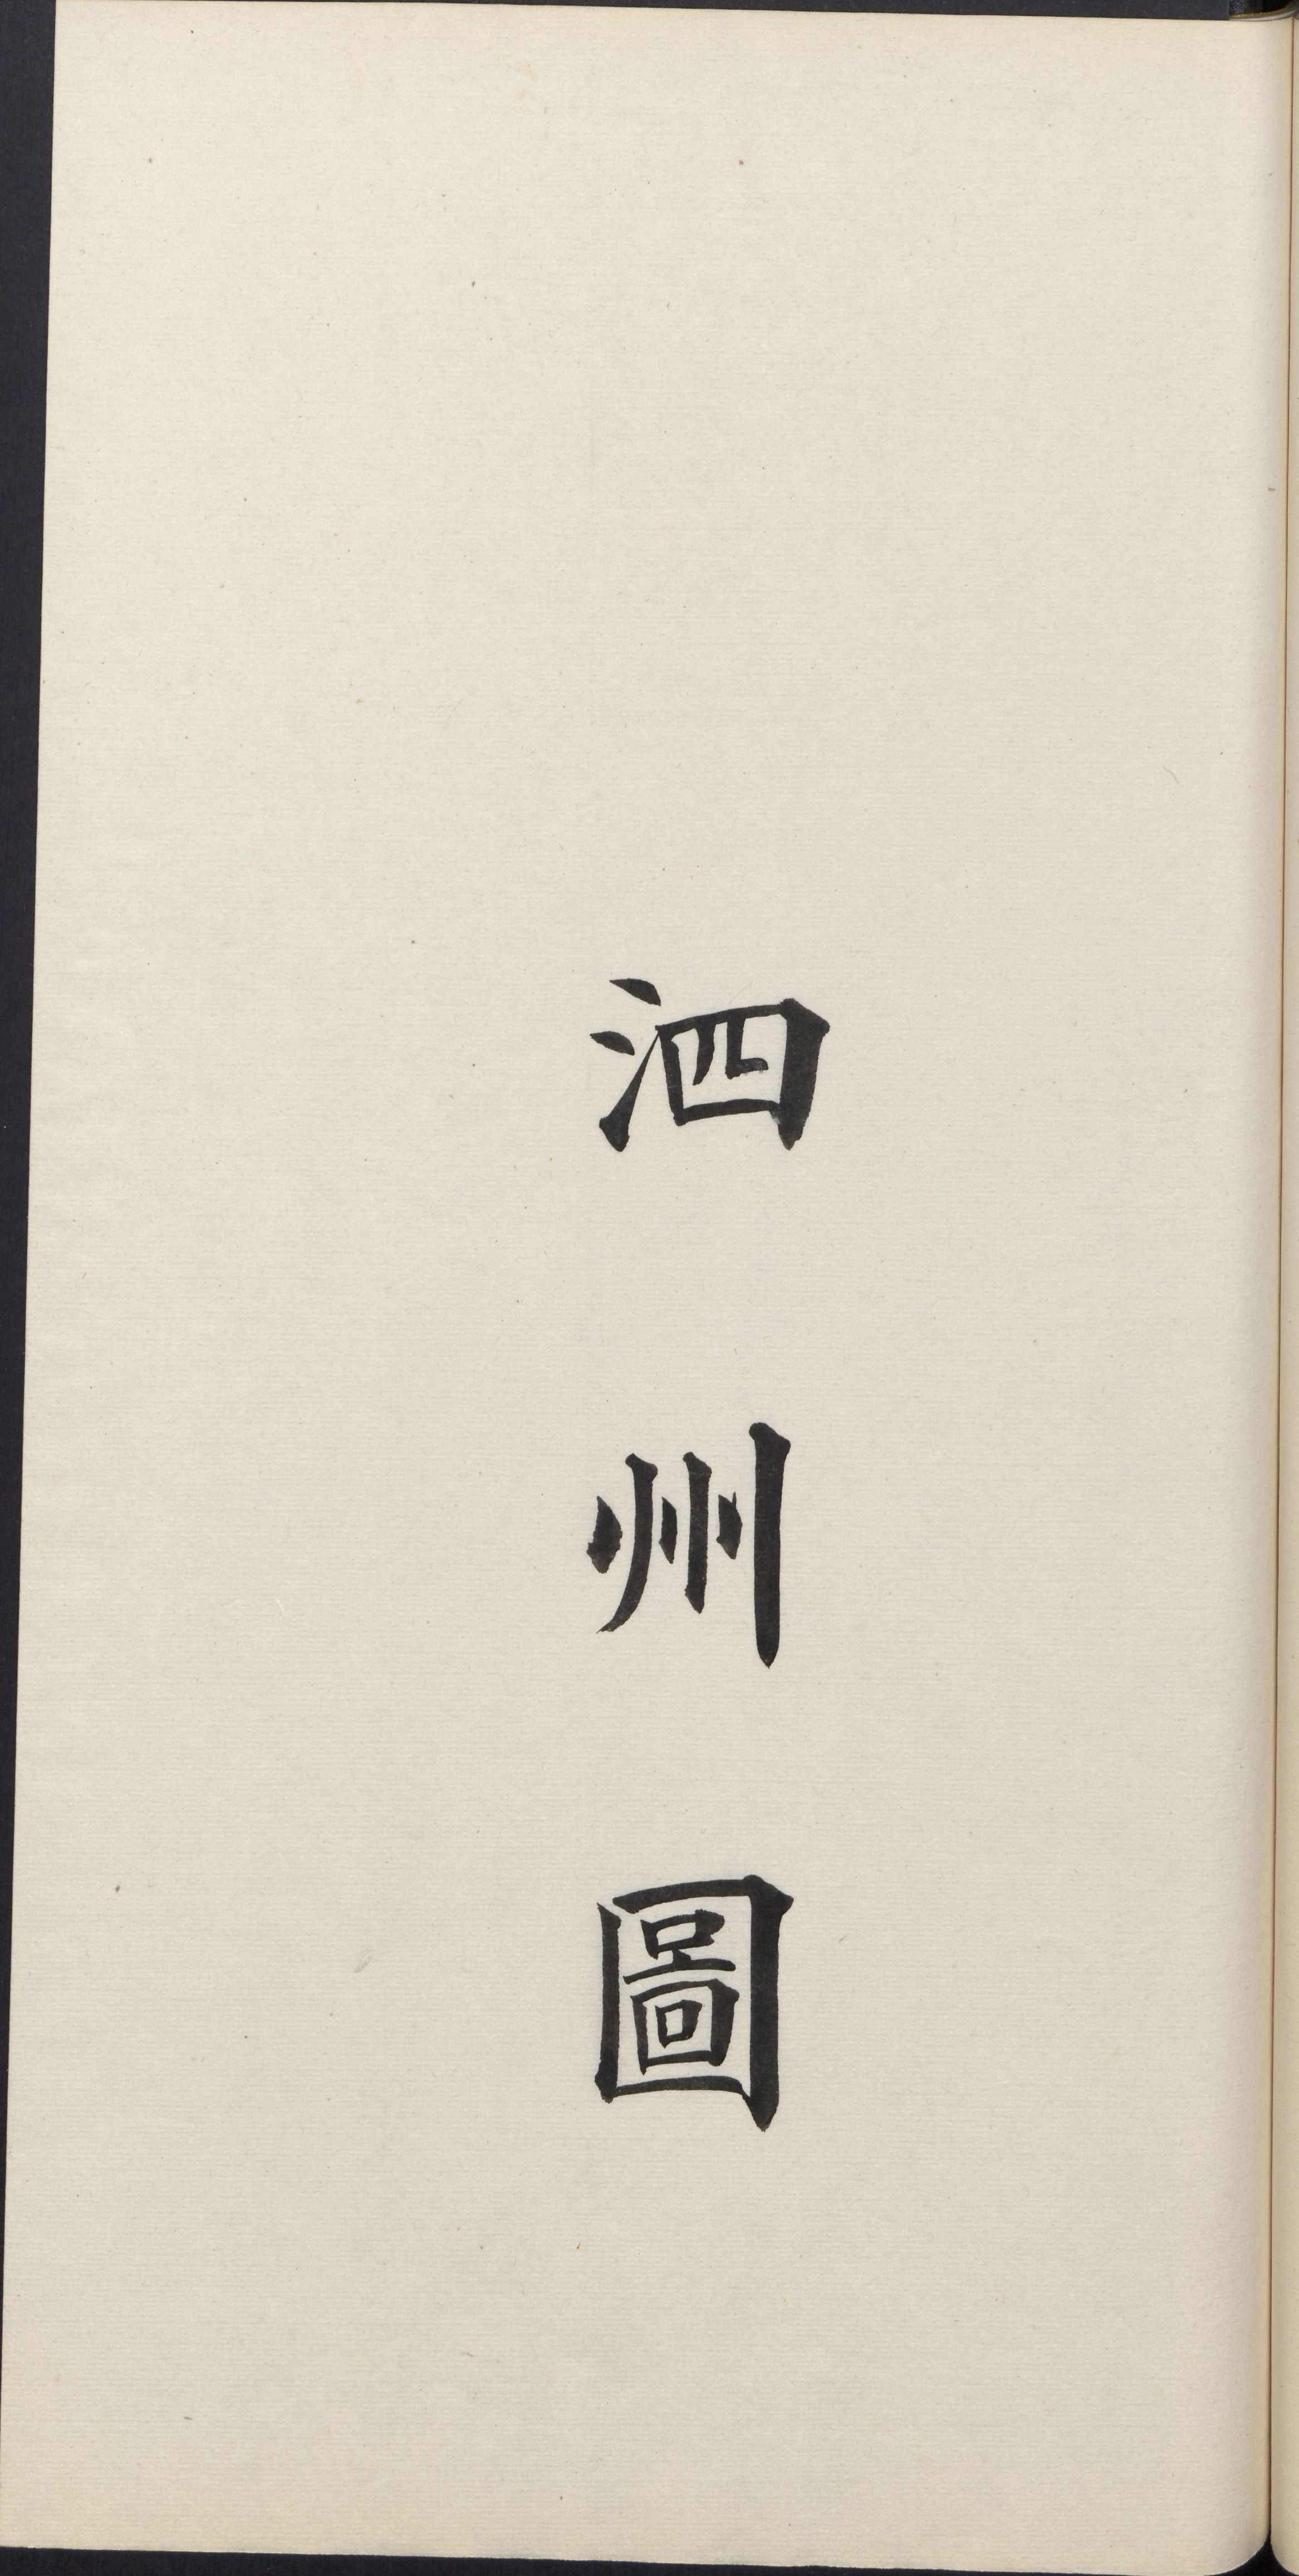 泗州圖